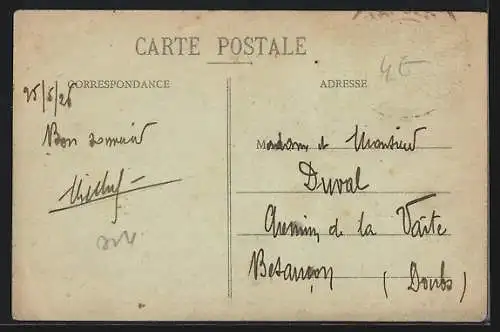 CARTE POSTALE
CORRESPONDANCE
ADRESSE
25/5/26
Bon souvenir
Madame et Monsieur
Duval
Chemin de la Vaite
Besançon (Doubs)